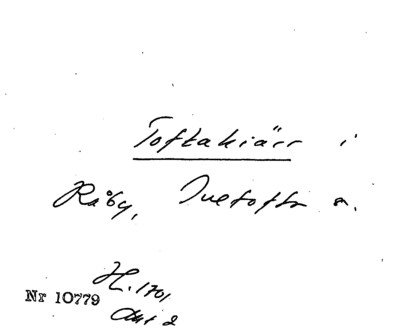 Toftakiärr i
Råby, Ivetofta s.
H. 1701
Nr 10779
Akt 2